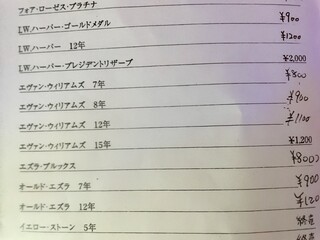 フォア・ローゼス・プラチナ
I.W.ハーパー・ゴールドメダル ¥900
I.W.ハーパー 12年 ¥1200
I.W.ハーパー・プレジデントリザーブ ¥2,000
エヴァン・ウィリアムズ 7年 ¥800
エヴァン・ウィリアムズ 8年 ¥900
エヴァン・ウィリアムズ 12年 ¥1100
エヴァン・ウィリアムズ 15年 ¥1,200
エズラ・ブルックス ¥800
オールド・エズラ 7年 ¥900
オールド・エズラ 12年 ¥120
イエロー・ストーン 5年 終売